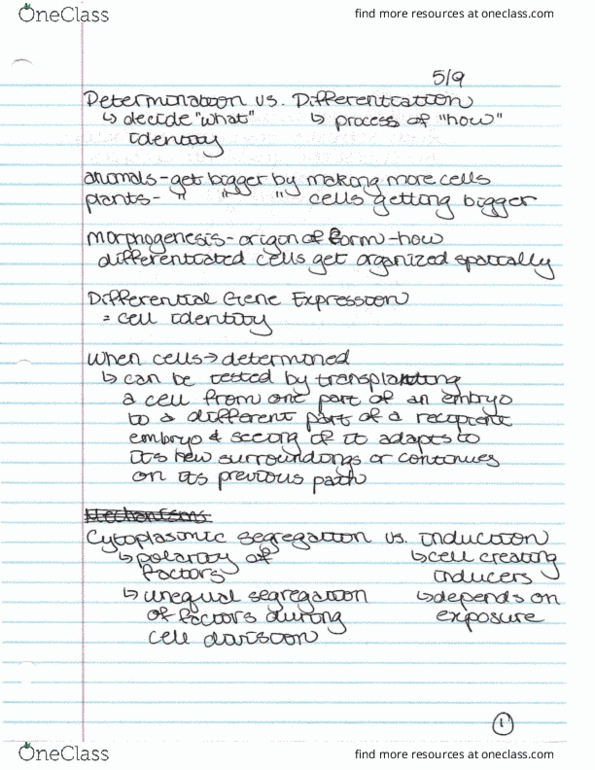 OneClass find more resources at oneclass.com
5/9
Determination vs. Differentiation
↳ decide "what" ↳ process of "how"
identity
animals - get bigger by making more cells
plants - " " " cells getting bigger
morphogenesis - origin of form - how
differentiated cells get organized spatially
Differential Gene Expression
= cell identity
When cells → determined
↳ can be tested by transplanting
a cell from one part of an embryo
to a different part of a recipient
embryo & seeing if it adapts to
its new surroundings or continues
on its previous path
Mechanisms
Cytoplasmic segregation vs. induction
↳ polarity of ↳ cell creating
factors inducers
↳ unequal segregation ↳ depends on
of factors during exposure
cell division
1
OneClass find more resources at oneclass.com